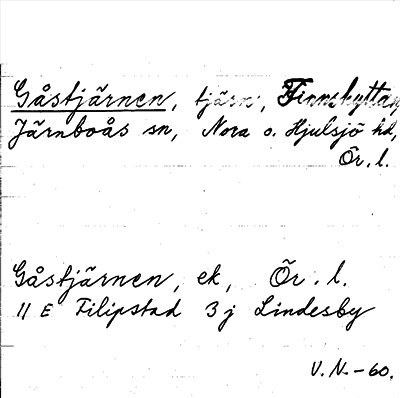 Gåstjärnen, tjärn, Finnshyttan,
Järnboås sn, Nora o. Hjulsjö hd,
Ör. l.
Gåstjärnen, ek, Ör. l.
11 E Filipstad 3 j Lindesby
V. N. - 60.